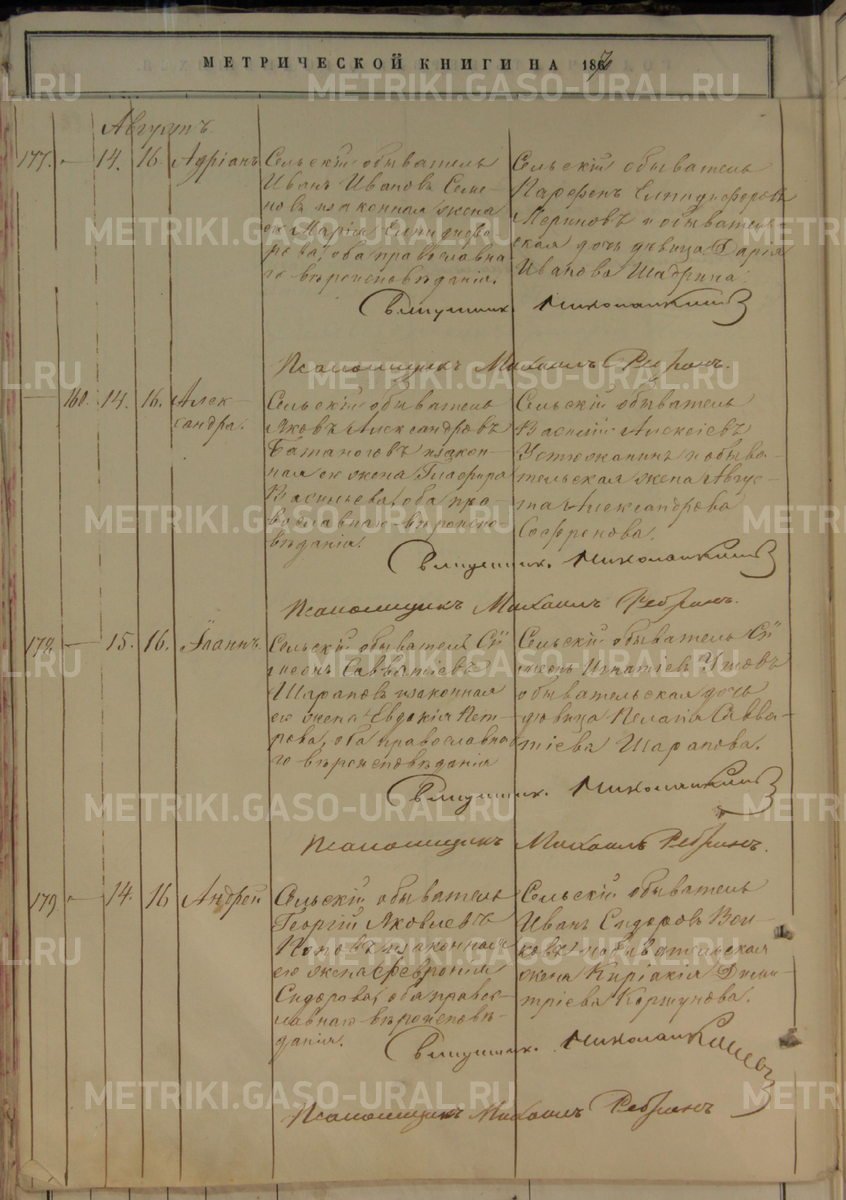 МЕТРИЧЕСКОЙ КНИГИ НА 187
Августъ
177. — 14. 16. Адріанъ
Сельскій обыватель
Иванъ Ивановъ Семе-
новъ и законная жена
его Марія Елпидифо-
рова, оба православна-
го вѣроисповѣданія.
Сельскій обыватель
Парфенъ Елпидифоровъ
и обыватель-
ская дочь дѣвица Дарія
Иванова Шадрина.
Священник. Николай
Псаломщикъ Михаилъ Ребринъ.
— 160. 14. 16. Алек-
сандра.
Сельскій обыватель
Яковъ Александровъ
Батаноговъ и закон-
ная его жена Глафира
Васильева, оба пра-
вославнаго вѣроиспо-
вѣданія.
Сельскій обыватель
Василій Алексіевъ
Устюжанинъ и обыва-
тельская жена Авгус-
та Александрова
Софронова.
Священник. Николай
Псаломщикъ Михаилъ Ребринъ.
178. — 15. 16. Іоаннъ.
Сельскій обыватель Си-
меонъ Савватіевъ
Шараповъ и законная
его жена Евдокія Пет-
рова, оба православна-
го вѣроисповѣданія
Сельскій обыватель Си-
меонъ Игнатіев
обывательская дочь
дѣвица Пелагія Савва-
тіева Шарапова.
Священник. Николай
Псаломщикъ Михаилъ Ребринъ.
179 — 14. 16 Андрей
Сельскій обыватель
Георгій Яковлевъ
Поповъ и законная
его жена Февронія
Сидорова, оба правос-
лавнаго вѣроисповѣ-
данія.
Сельскій обыватель
Иванъ Сидоровъ Вол-
ковъ и обывательская
жена Киріакія Дими-
тріева Коршунова.
Священник. Николай
Псаломщикъ Михаилъ Ребринъ
METRIKI.GASO-URAL.RU